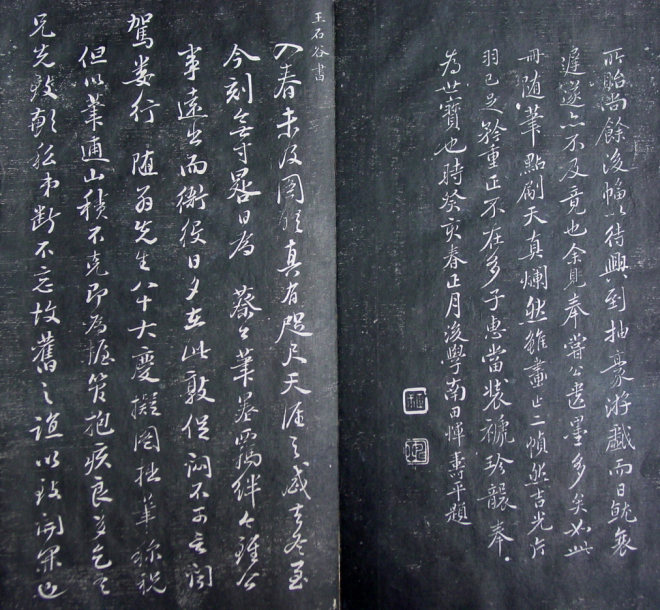 所貽尚餘後幅以待興到抽豪游戲而日就衰
遲遂亦不及竟也余見奉嘗公遺墨多矣如此
冊隨筆點刷天真爛然雖畫止二幀然吉光片
羽已足矜重正不在多子惠當裝褫珍襲奉
為世寶也時癸亥春正月後學南田惲壽平題
王石谷書
入春未及圖晤真有咫尺天涯之感去冬至
今刻無寸晷日為 蔡公筆墨羈絆今雖公
事遠出而衙役日夕在此敦促悶不可言聞
駕婁行 隨翁先生八十大慶擬圖拙筆稱祝
但以筆逋山積不克即為握管抱疚良多乞
兄先致 斷不忘故舊之誼以致開罪也